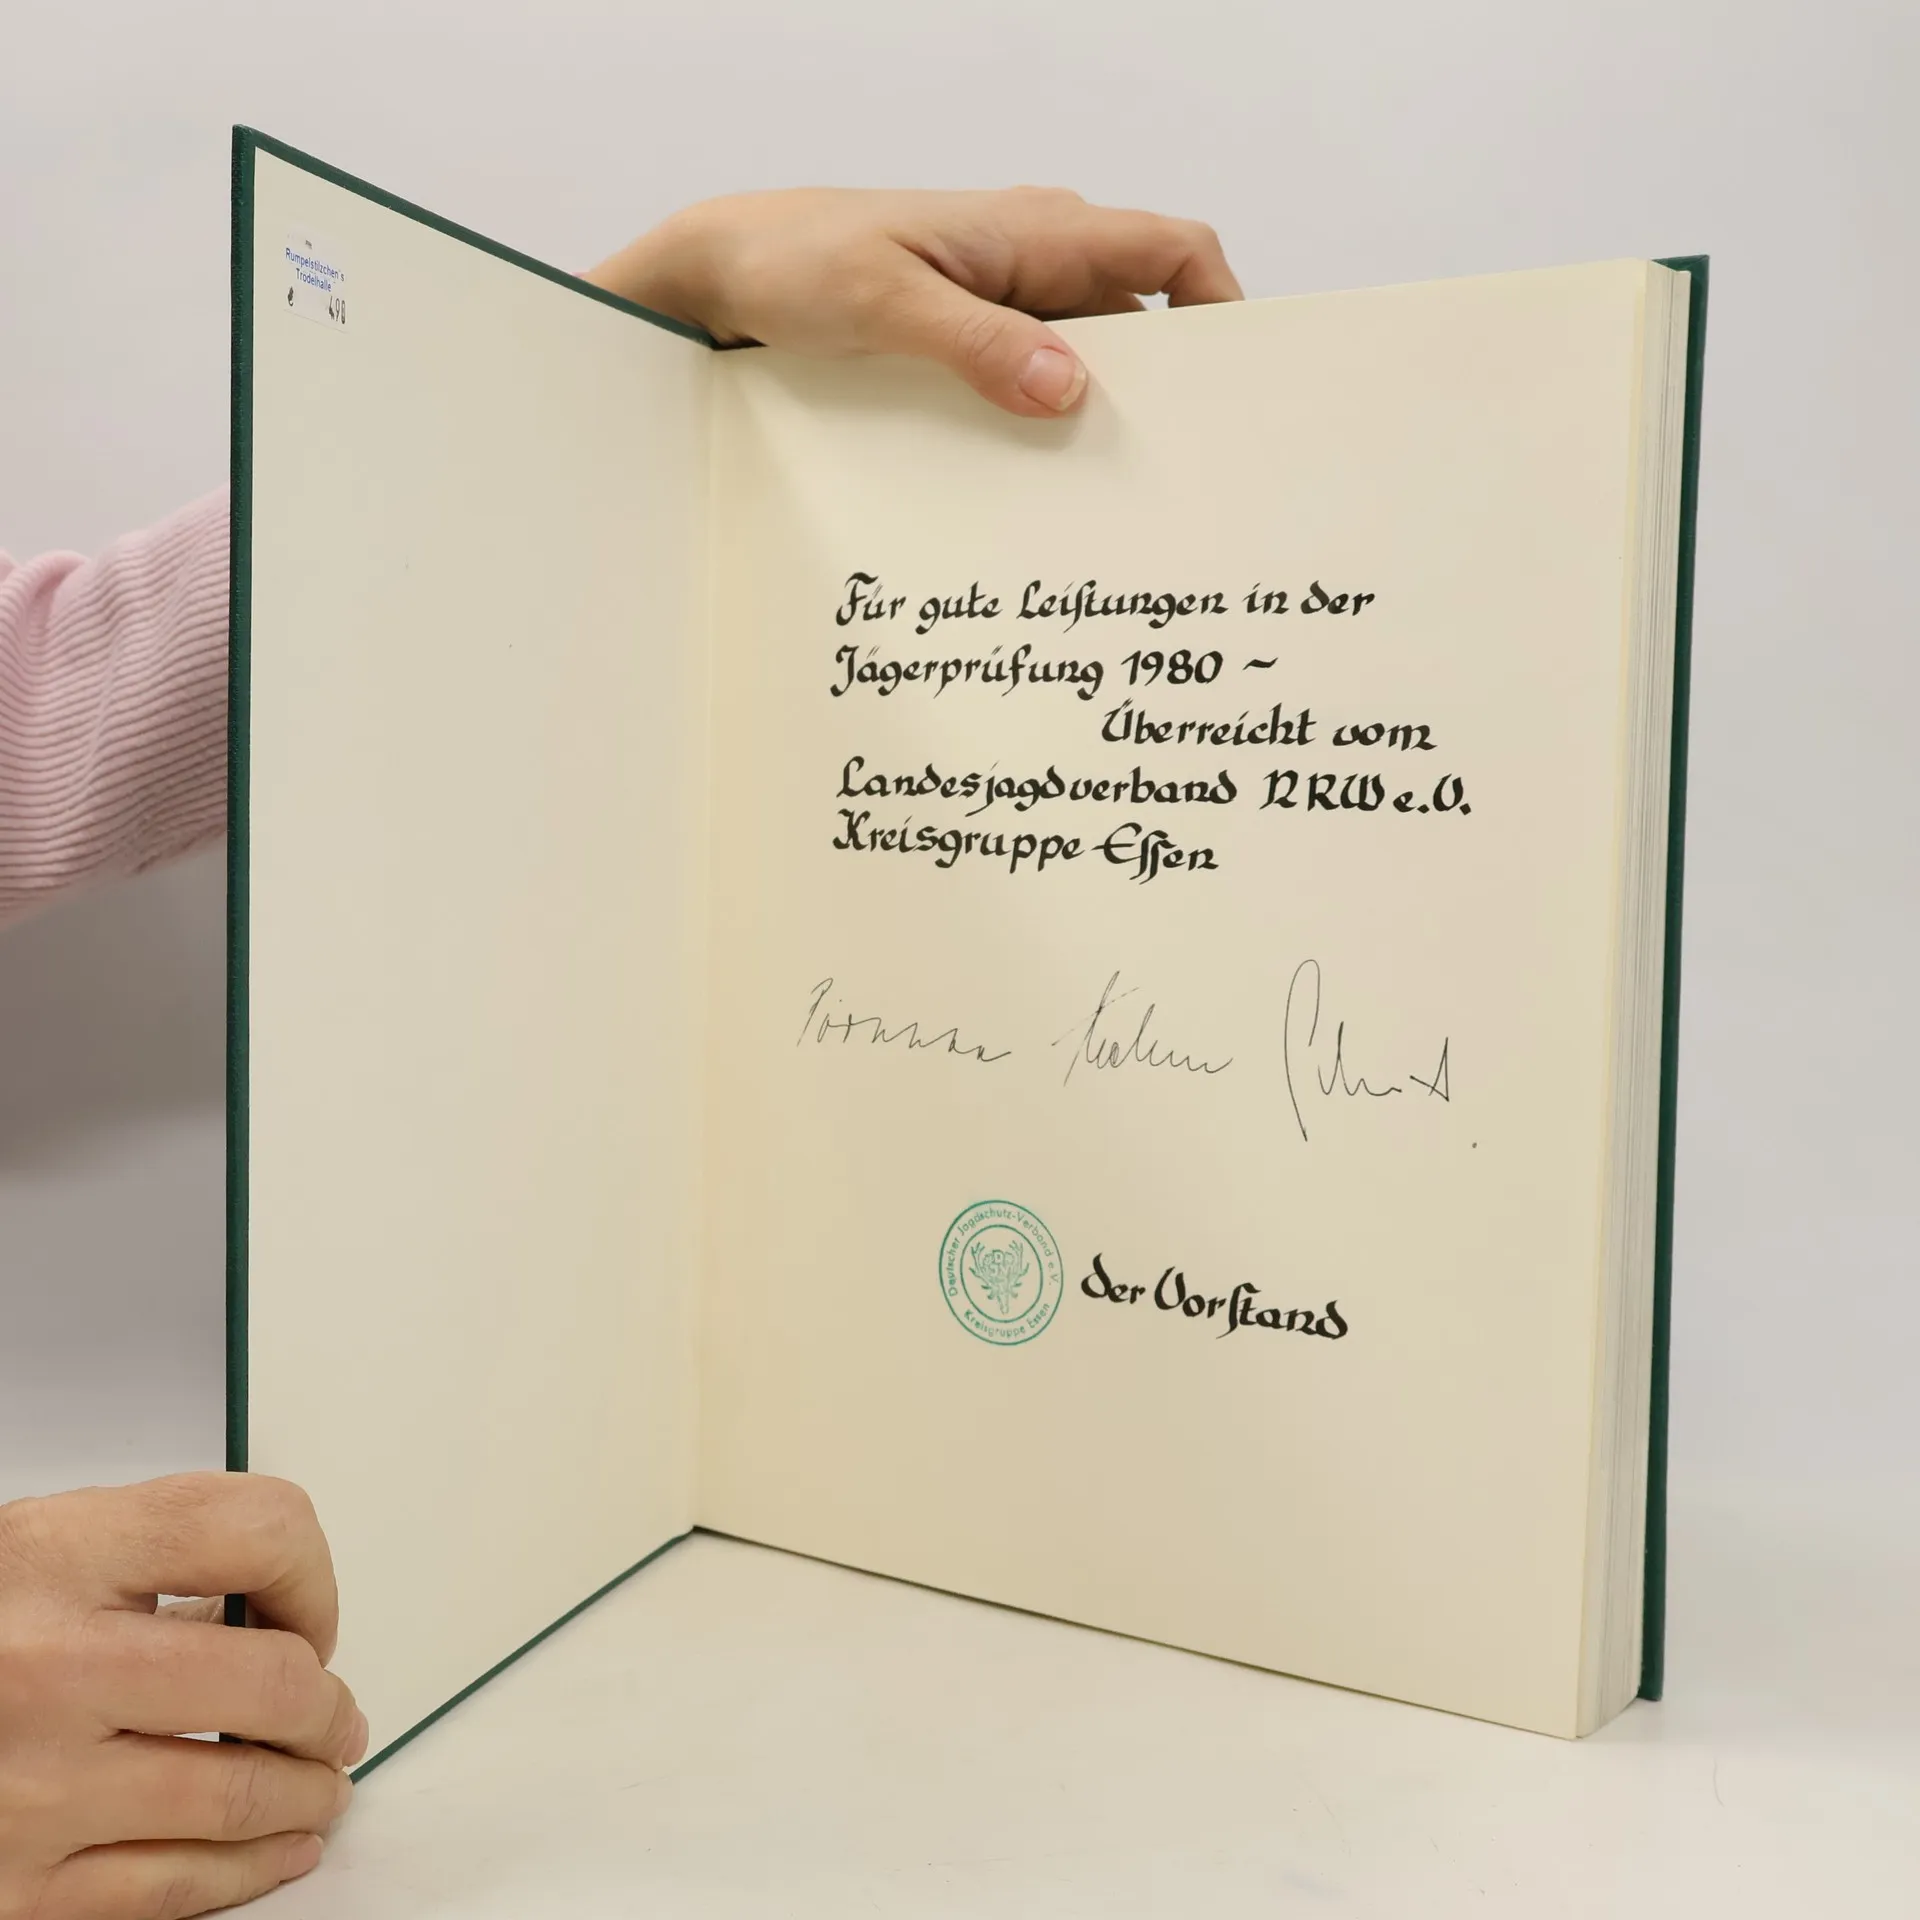 Rumpelstilzchen's
Trödelhalle
€ 4,90
Für gute Leistungen in der
Jägerprüfung 1980 ~
Überreicht vom
Landesjagdverband NRW e.V.
Kreisgruppe Essen
Deutscher Jagdschutz-Verband e.V.
DJV
Kreisgruppe Essen
der Vorstand